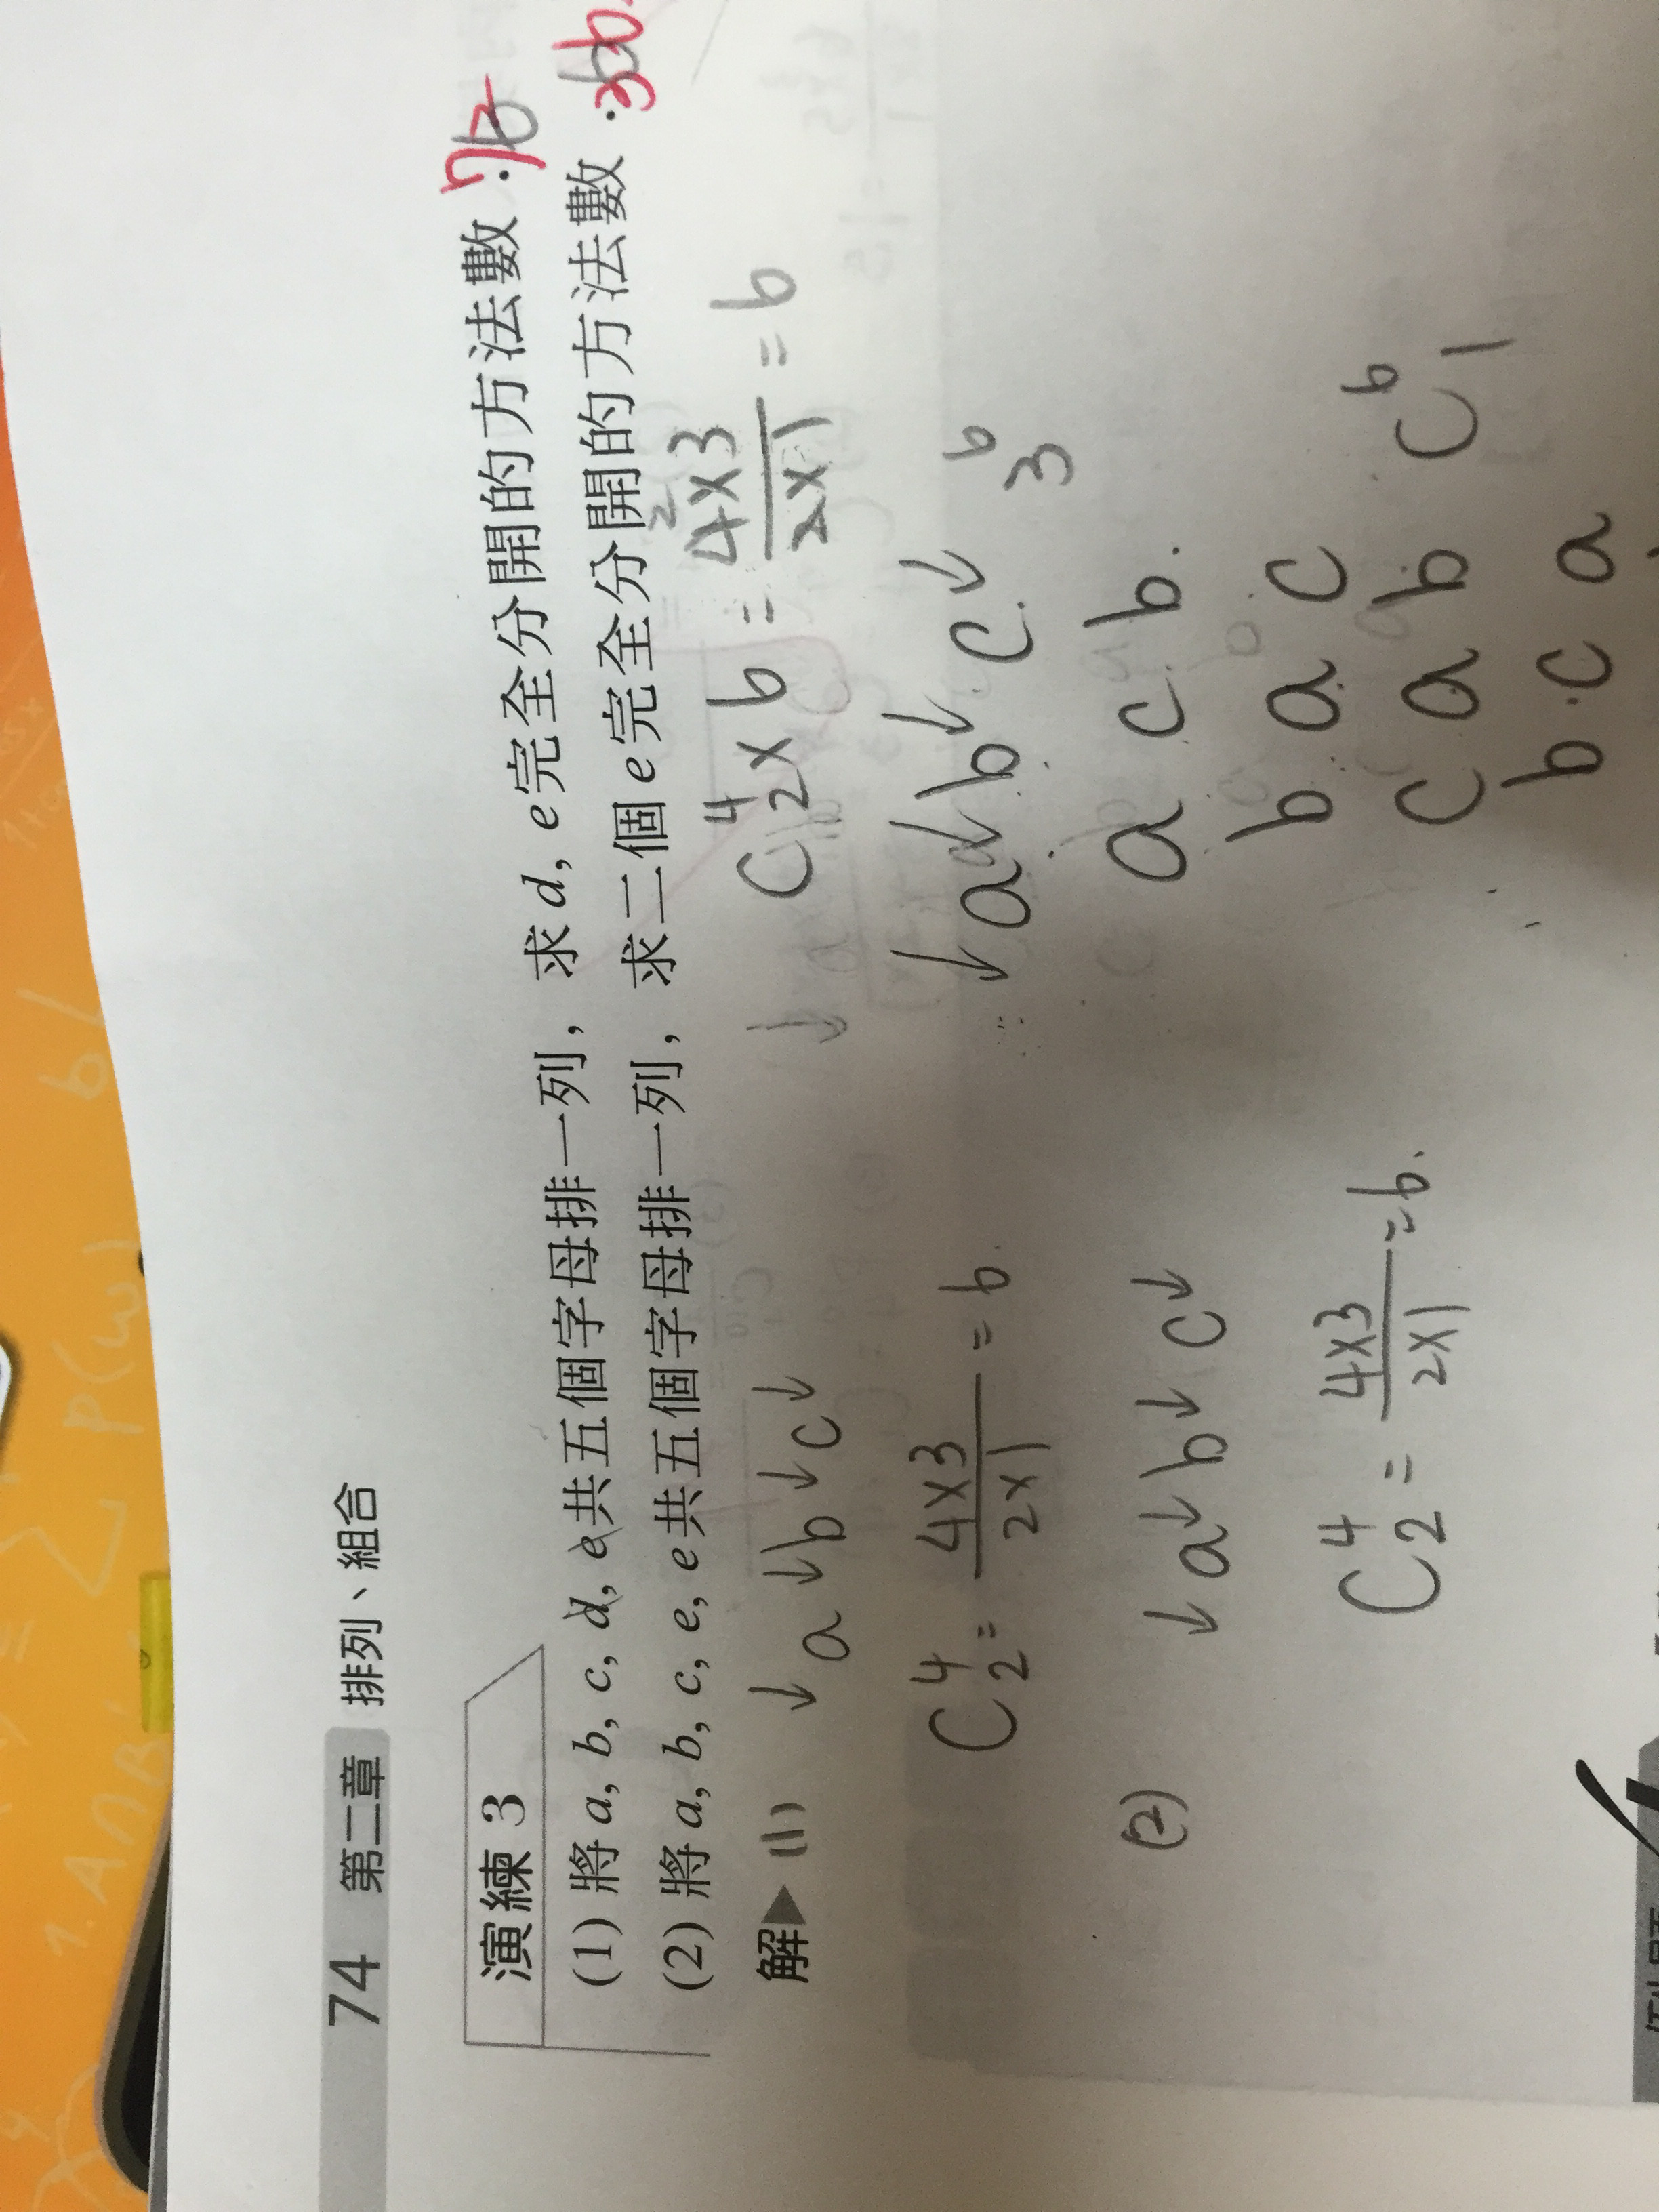 74 第二章 排列、組合
演練 3
(1) 將 a, b, c, d, e 共五個字母排一列，求 d, e 完全分開的方法數. 72
(2) 將 a, b, c, e, e 共五個字母排一列，求二個 e 完全分開的方法數. 36.
解▶ (1) ↓a↓b↓c↓
C⁴₂ = 4×3/2×1 = 6
(2) ↓a↓b↓c↓
C⁴₂ = 4×3/2×1 = 6.
C⁴₂×6 = 4×3/2×1 = 6
↓a↓b↓c↓
a c b.
b a c
c a b C⁶₁
b c a